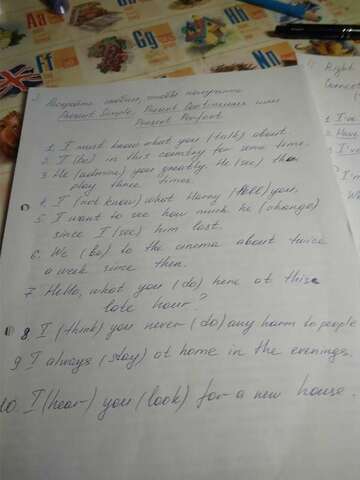 Aa
Gg
Hh
Nn
3 Раскройте скобки, чтобы получить
Present Simple, Present Continuous или
Present Perfect
1. I must know what you (talk) about.
2. I (be) in this country for some time.
3. He (admire) you greatly. He (see) the
play three times.
4. I (not know) what Harry (tell) you.
5 I want to see how much he (change)
since I (see) him last.
6. We (be) to the cinema about twice
a week since then.
7. Hello, what you (do) here at this
late hour?
8. I (think) you never (do) any harm to people
9 I always (stay) at home in the evenings.
10. I (hear) you (look) for a new house.
Right
Correct
1 I've
2. I
3. I